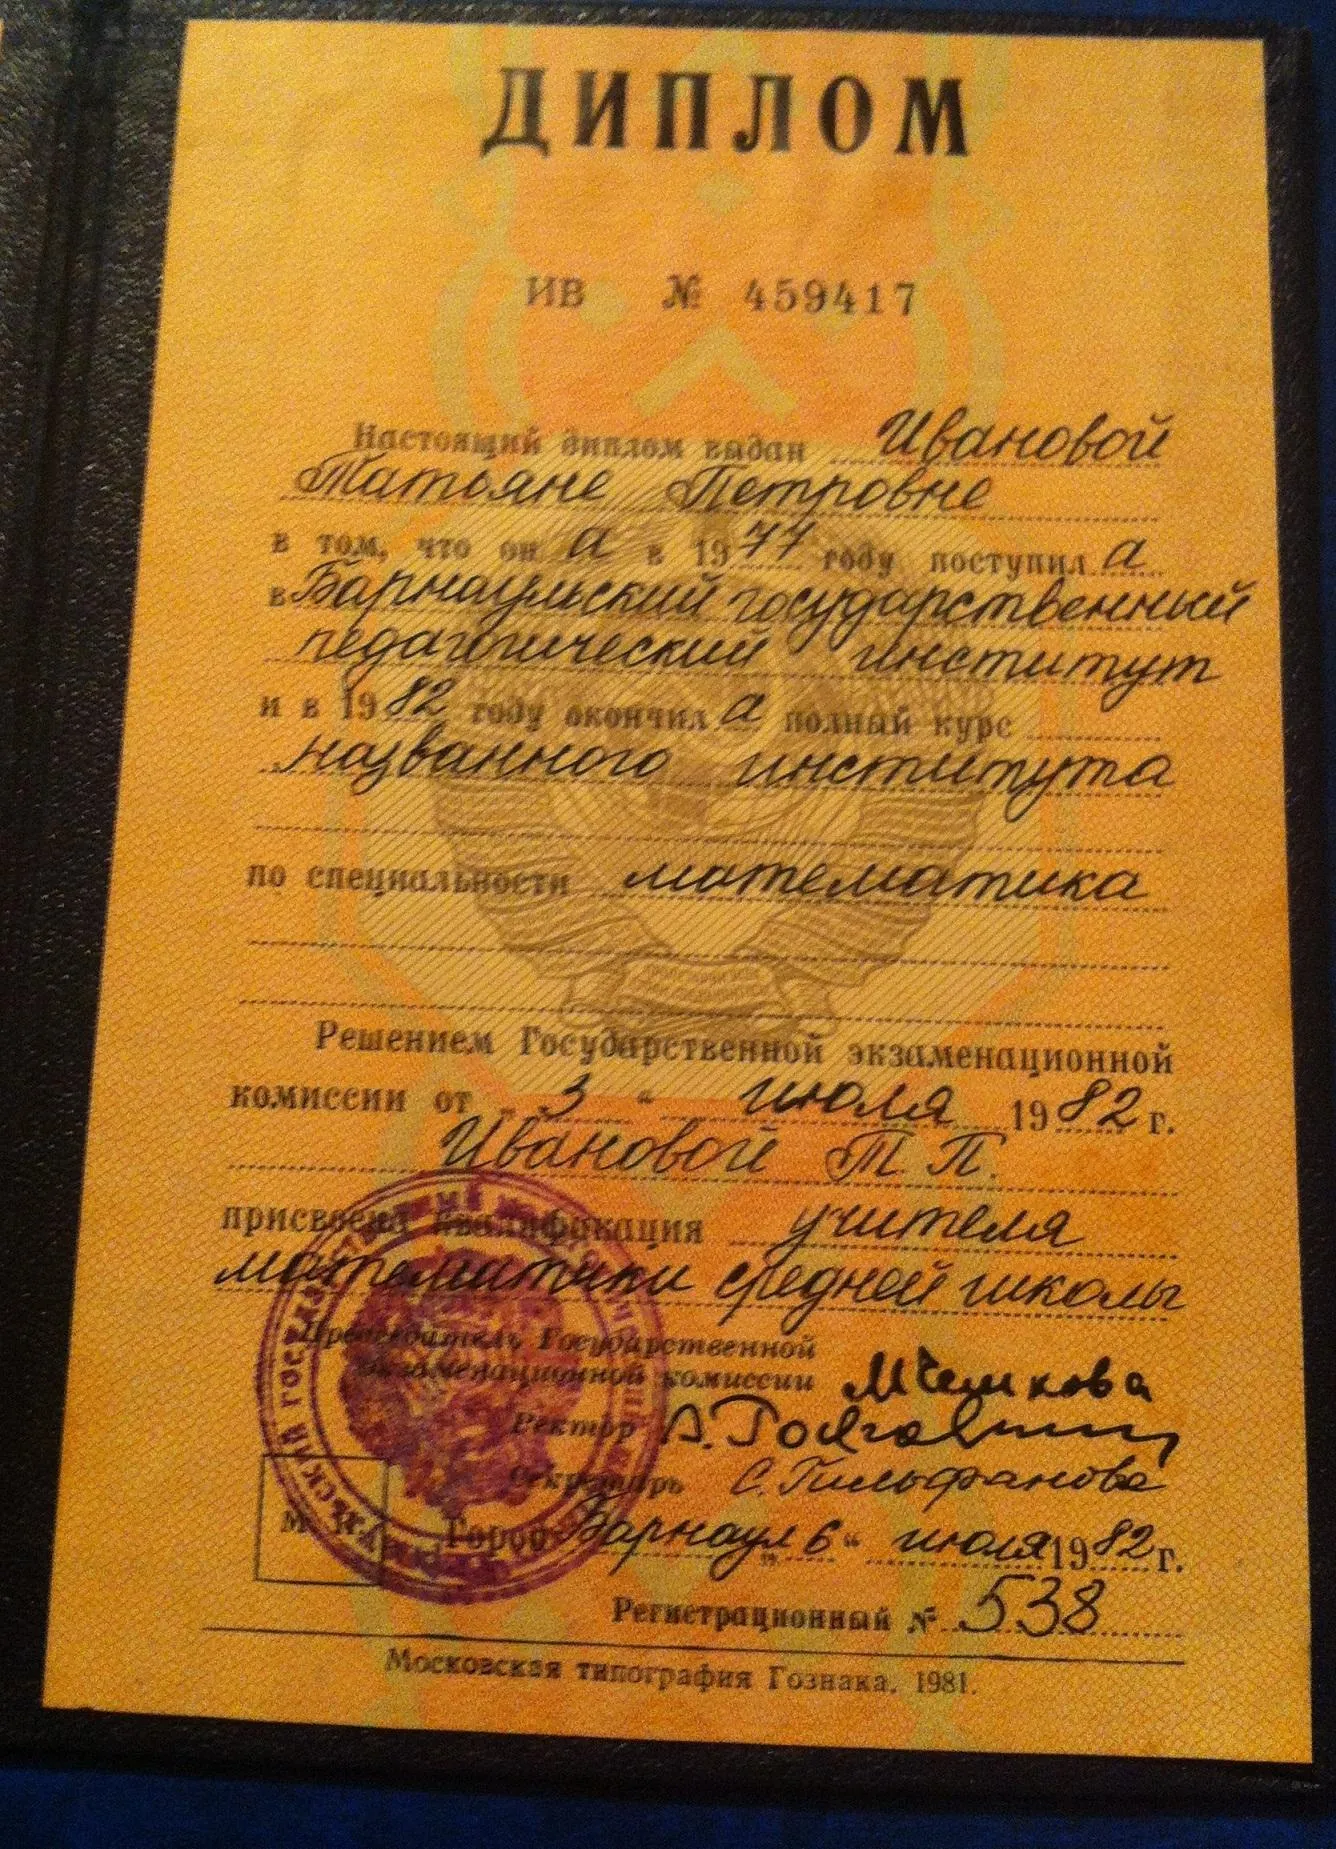 ДИПЛОМ
ИВ № 459417
Настоящий диплом выдан Ивановой
Татьяне Петровне
в том, что он а в 1977 году поступил а
в Барнаульский государственный
педагогический институт
и в 1982 году окончил а полный курс
названного института
по специальности математика
Решением Государственной экзаменационной
комиссии от „ 3 “ июля 1982 г.
Ивановой Т. П.
присвоена квалификация учителя
математики средней школы
Председатель Государственной
экзаменационной комиссии
Ректор
Секретарь С. Гильфанова
Город Барнаул „ 6 “ июля 1982 г.
Регистрационный № 538
Московская типография Гознака. 1981.